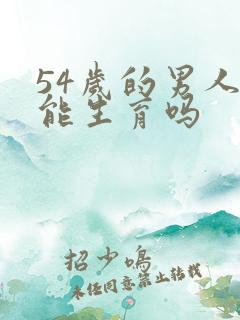 54岁的男人
能生育吗
招少鸣
未经同意禁止转载